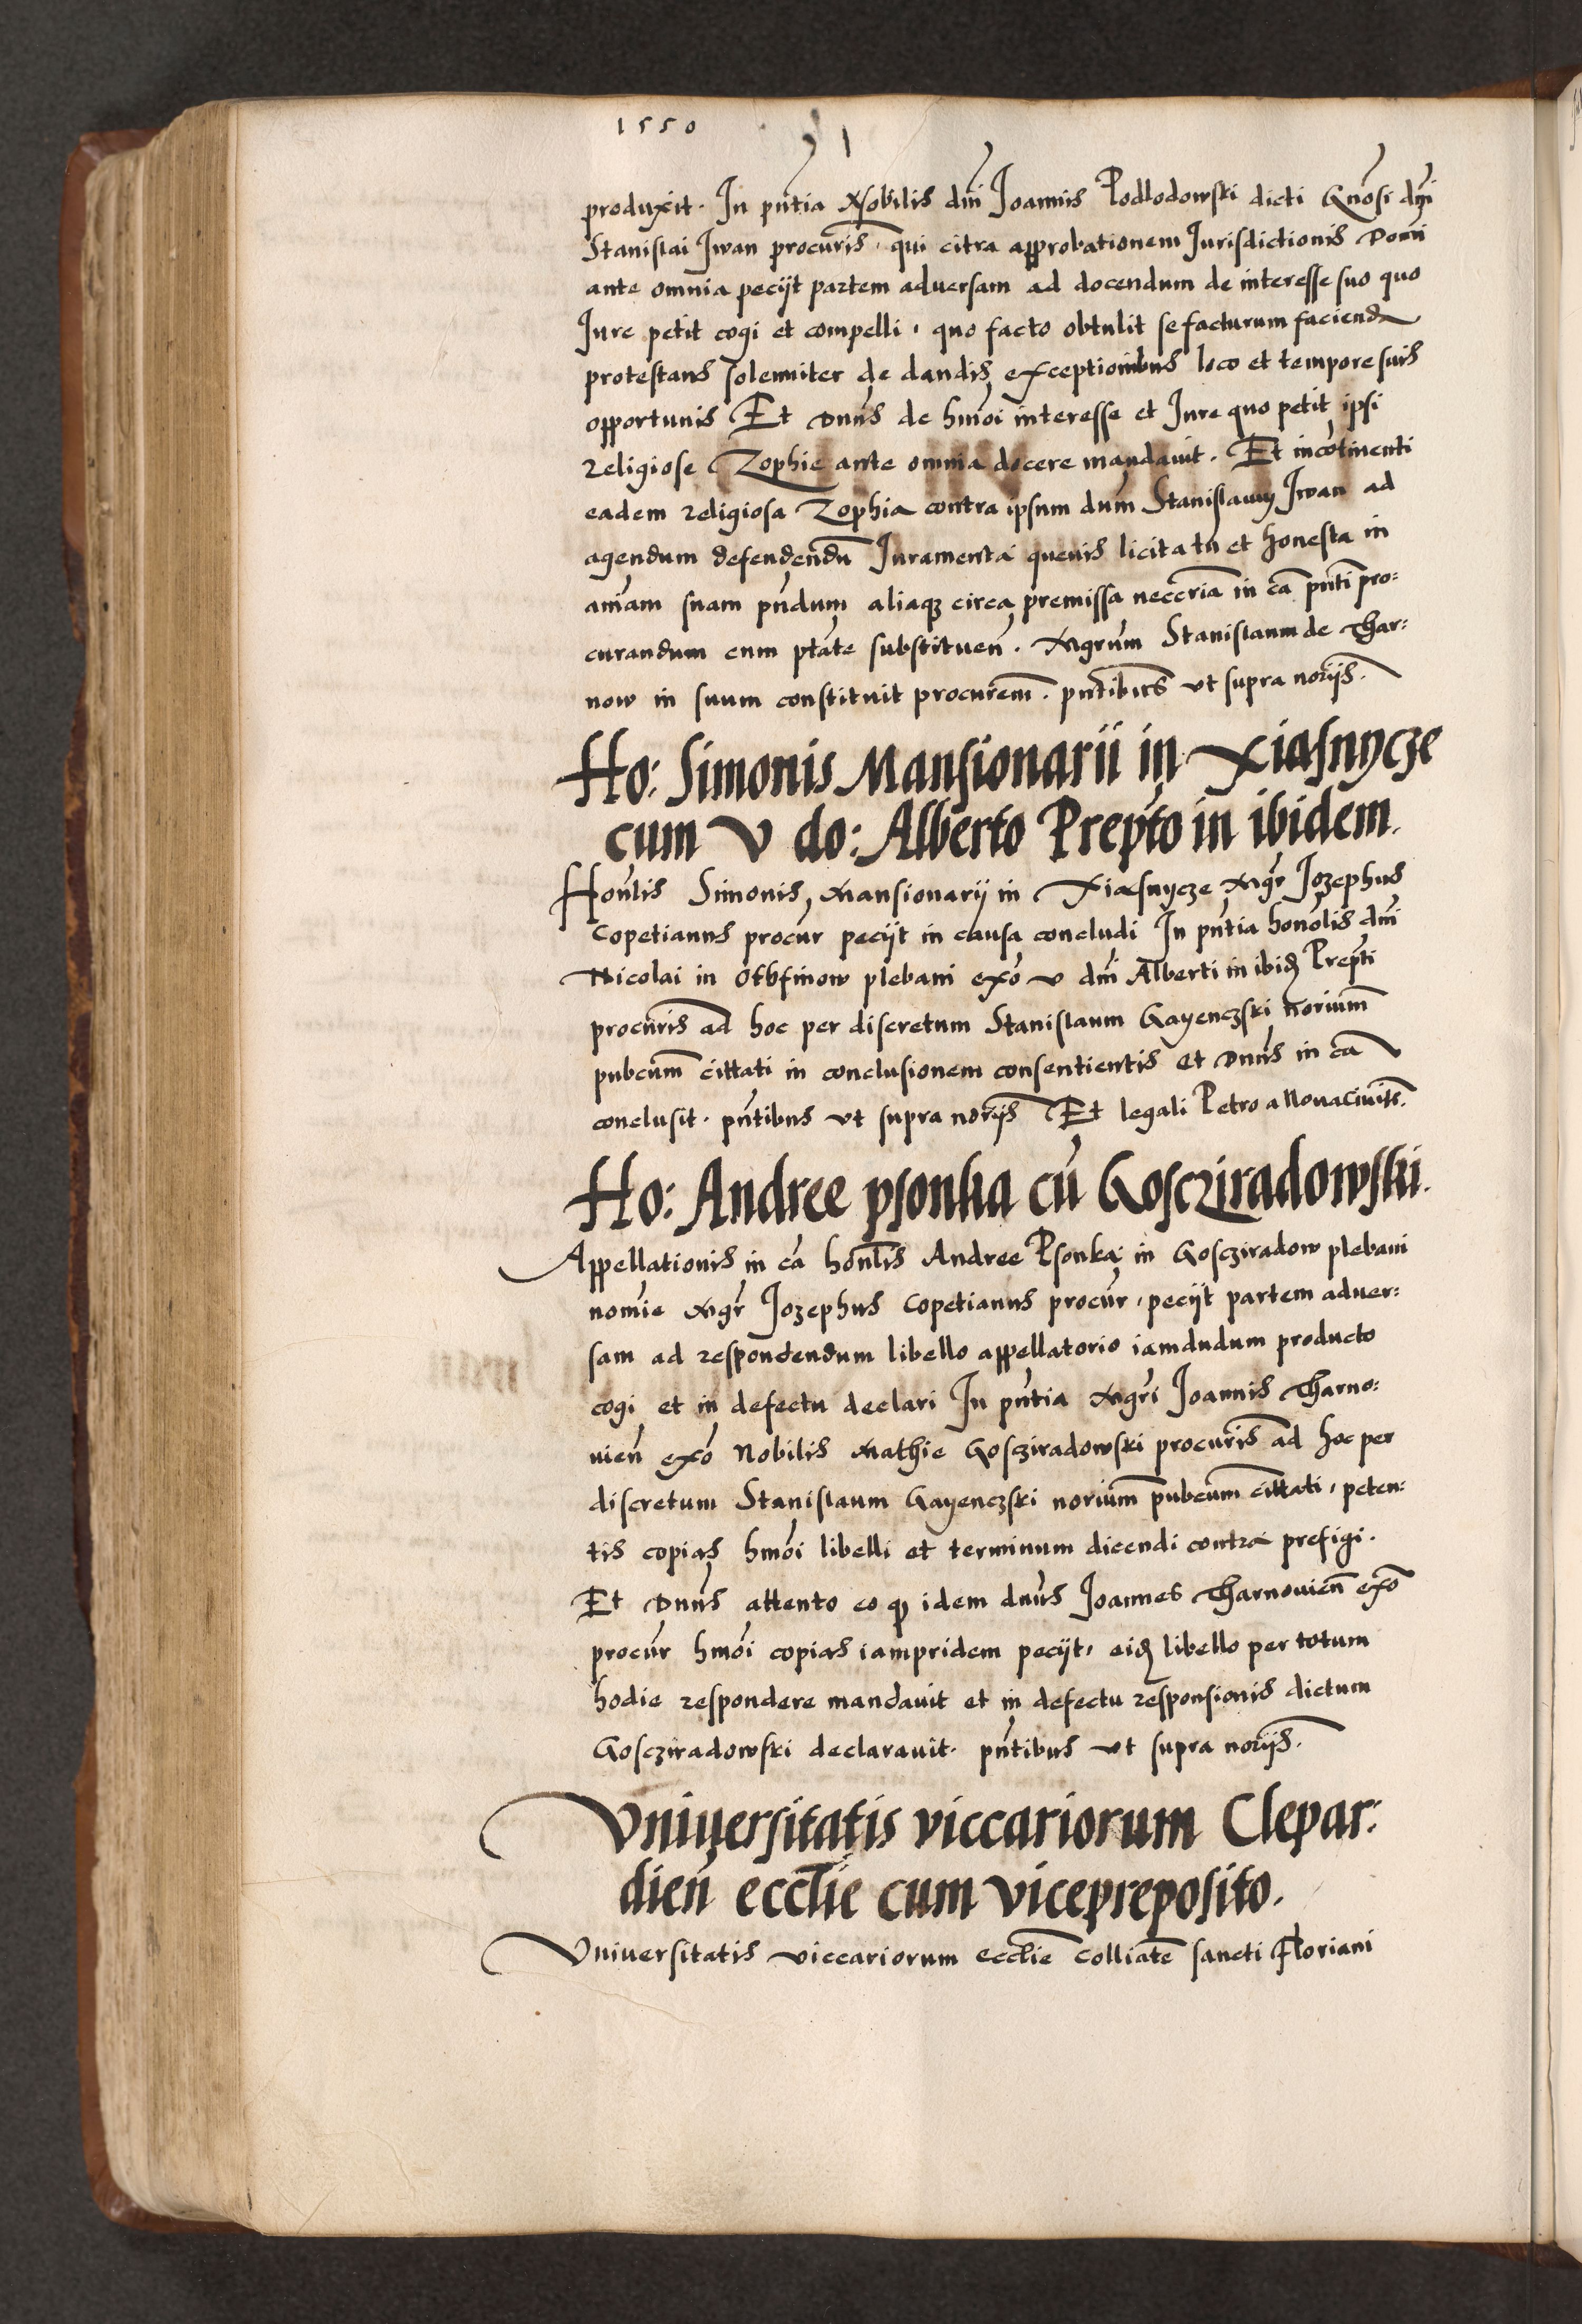 1550
produxit. In pñtia Nobilis dñi Joannis Podlodowski dicti Gnosi dñi
Stanislai Iwan procuris, qui citra approbationem Jurisdictionis Domi
ante omnia pecijt partem adversam ad docendum de interesse suo quo
Jure petit cogi et compelli, quo facto obtulit se facturum faciend
protestans solemniter de dandis exceptionibus loco et tempore suis
opportunis Et Dnns de hmoi interesse et Jure quo petit ipsi
religiose Zophie ante omnia docere mandavit. Et incotinenti
eadem religiosa Zophia contra ipsum dum Stanislaum Iwan ad
agendum defendendu Juramenta quevis licita tñ et honesta in
aiam suam pñdum aliaqz circa premissa necceria in ca pñti pro:
curandum cum ptate substituen. Mgrum Stanislaum de Thar:
now in suum constituit procurem. pñtibus ut supra norijs.
Ho: Simonis Mansionarii in Xiasnycze
cum V do: Alberto Prepto in ibidem.
Honlis Simonis, Mansionarij in Xiasnycze Mgr Jozephus
Copetianus procur pecijt in causa concludi In pñtia honolis dñi
Nicolai in Othfinow plebani exo v dñi Alberti in ibid Prepti
procuris ad hoc per discretum Stanislaum Gayenczski norium
pubcum cittati in conclusionem consentientis et Dnns in ca
conclusit. pñtibus ut supra norijs Et legali Petro a Novacivits.
Ho: Andree psonka cũ Goscziradowski.
Appellationis in ca honlis Andree Psonka in Goscziradow plebani
nomie Mgr Jozephus Copetianus procur, pecijt partem adver:
sam ad respondendum libello appellatorio iamdudum producto
cogi et in defectu declari In pñtia Mgri Joannis Tharno:
vien exo Nobilis Mathie Goscziradowski procuris ad hoc per
discretum Stanislaum Gayenczski norium pubcum cittati, peten:
tis copias hmoi libelli et terminum dicendi contra prefigi.
Et Dnns attento eo qp idem dnns Joannes Tharnovien exo
procur hmoi copias iampridem pecijt, eid libello per totum
hodie respondere mandavit et in defectu responsionis dictum
Goscziradowski declaravit. pñtibus ut supra norijs.
Universitatis viccariorum Clepar:
dien ecclie cum vicepreposito.
Universitatis viccariorum ecclie colliate sancti Floriani